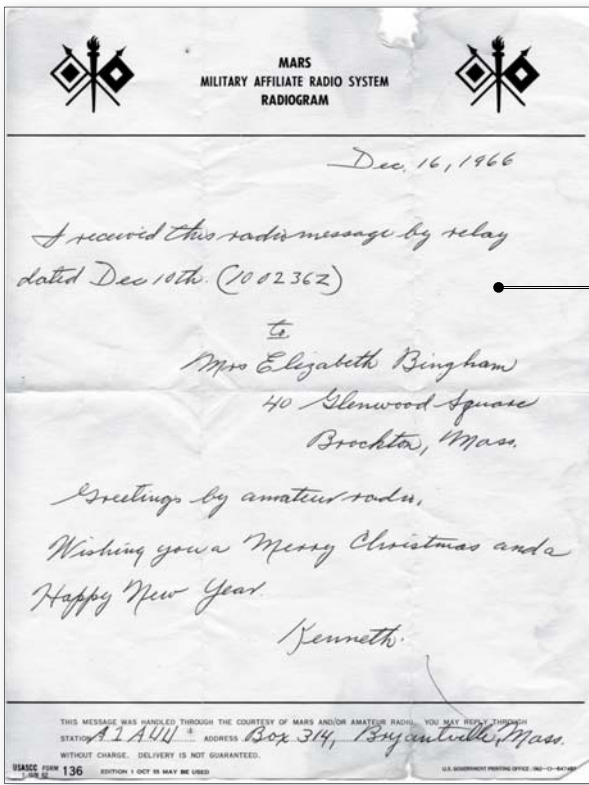 MARS
MILITARY AFFILIATE RADIO SYSTEM
RADIOGRAM
Dec. 16, 1966
I received this radio message by relay
dated Dec 10th. (100236Z)
to
Mrs Elizabeth Bingham
40 Glenwood Square
Brockton, Mass.
Greetings by amateur radio,
Wishing you a Merry Christmas and a
Happy New Year.
Kenneth.
THIS MESSAGE WAS HANDLED THROUGH THE COURTESY OF MARS AND/OR AMATEUR RADIO. YOU MAY REPLY THROUGH
STATION ADDRESS Box 314, Bryantville, Mass.
WITHOUT CHARGE. DELIVERY IS NOT GUARANTEED.
USASCC FORM 136 EDITION 1 OCT 55 MAY BE USED
U.S. GOVERNMENT PRINTING OFFICE: